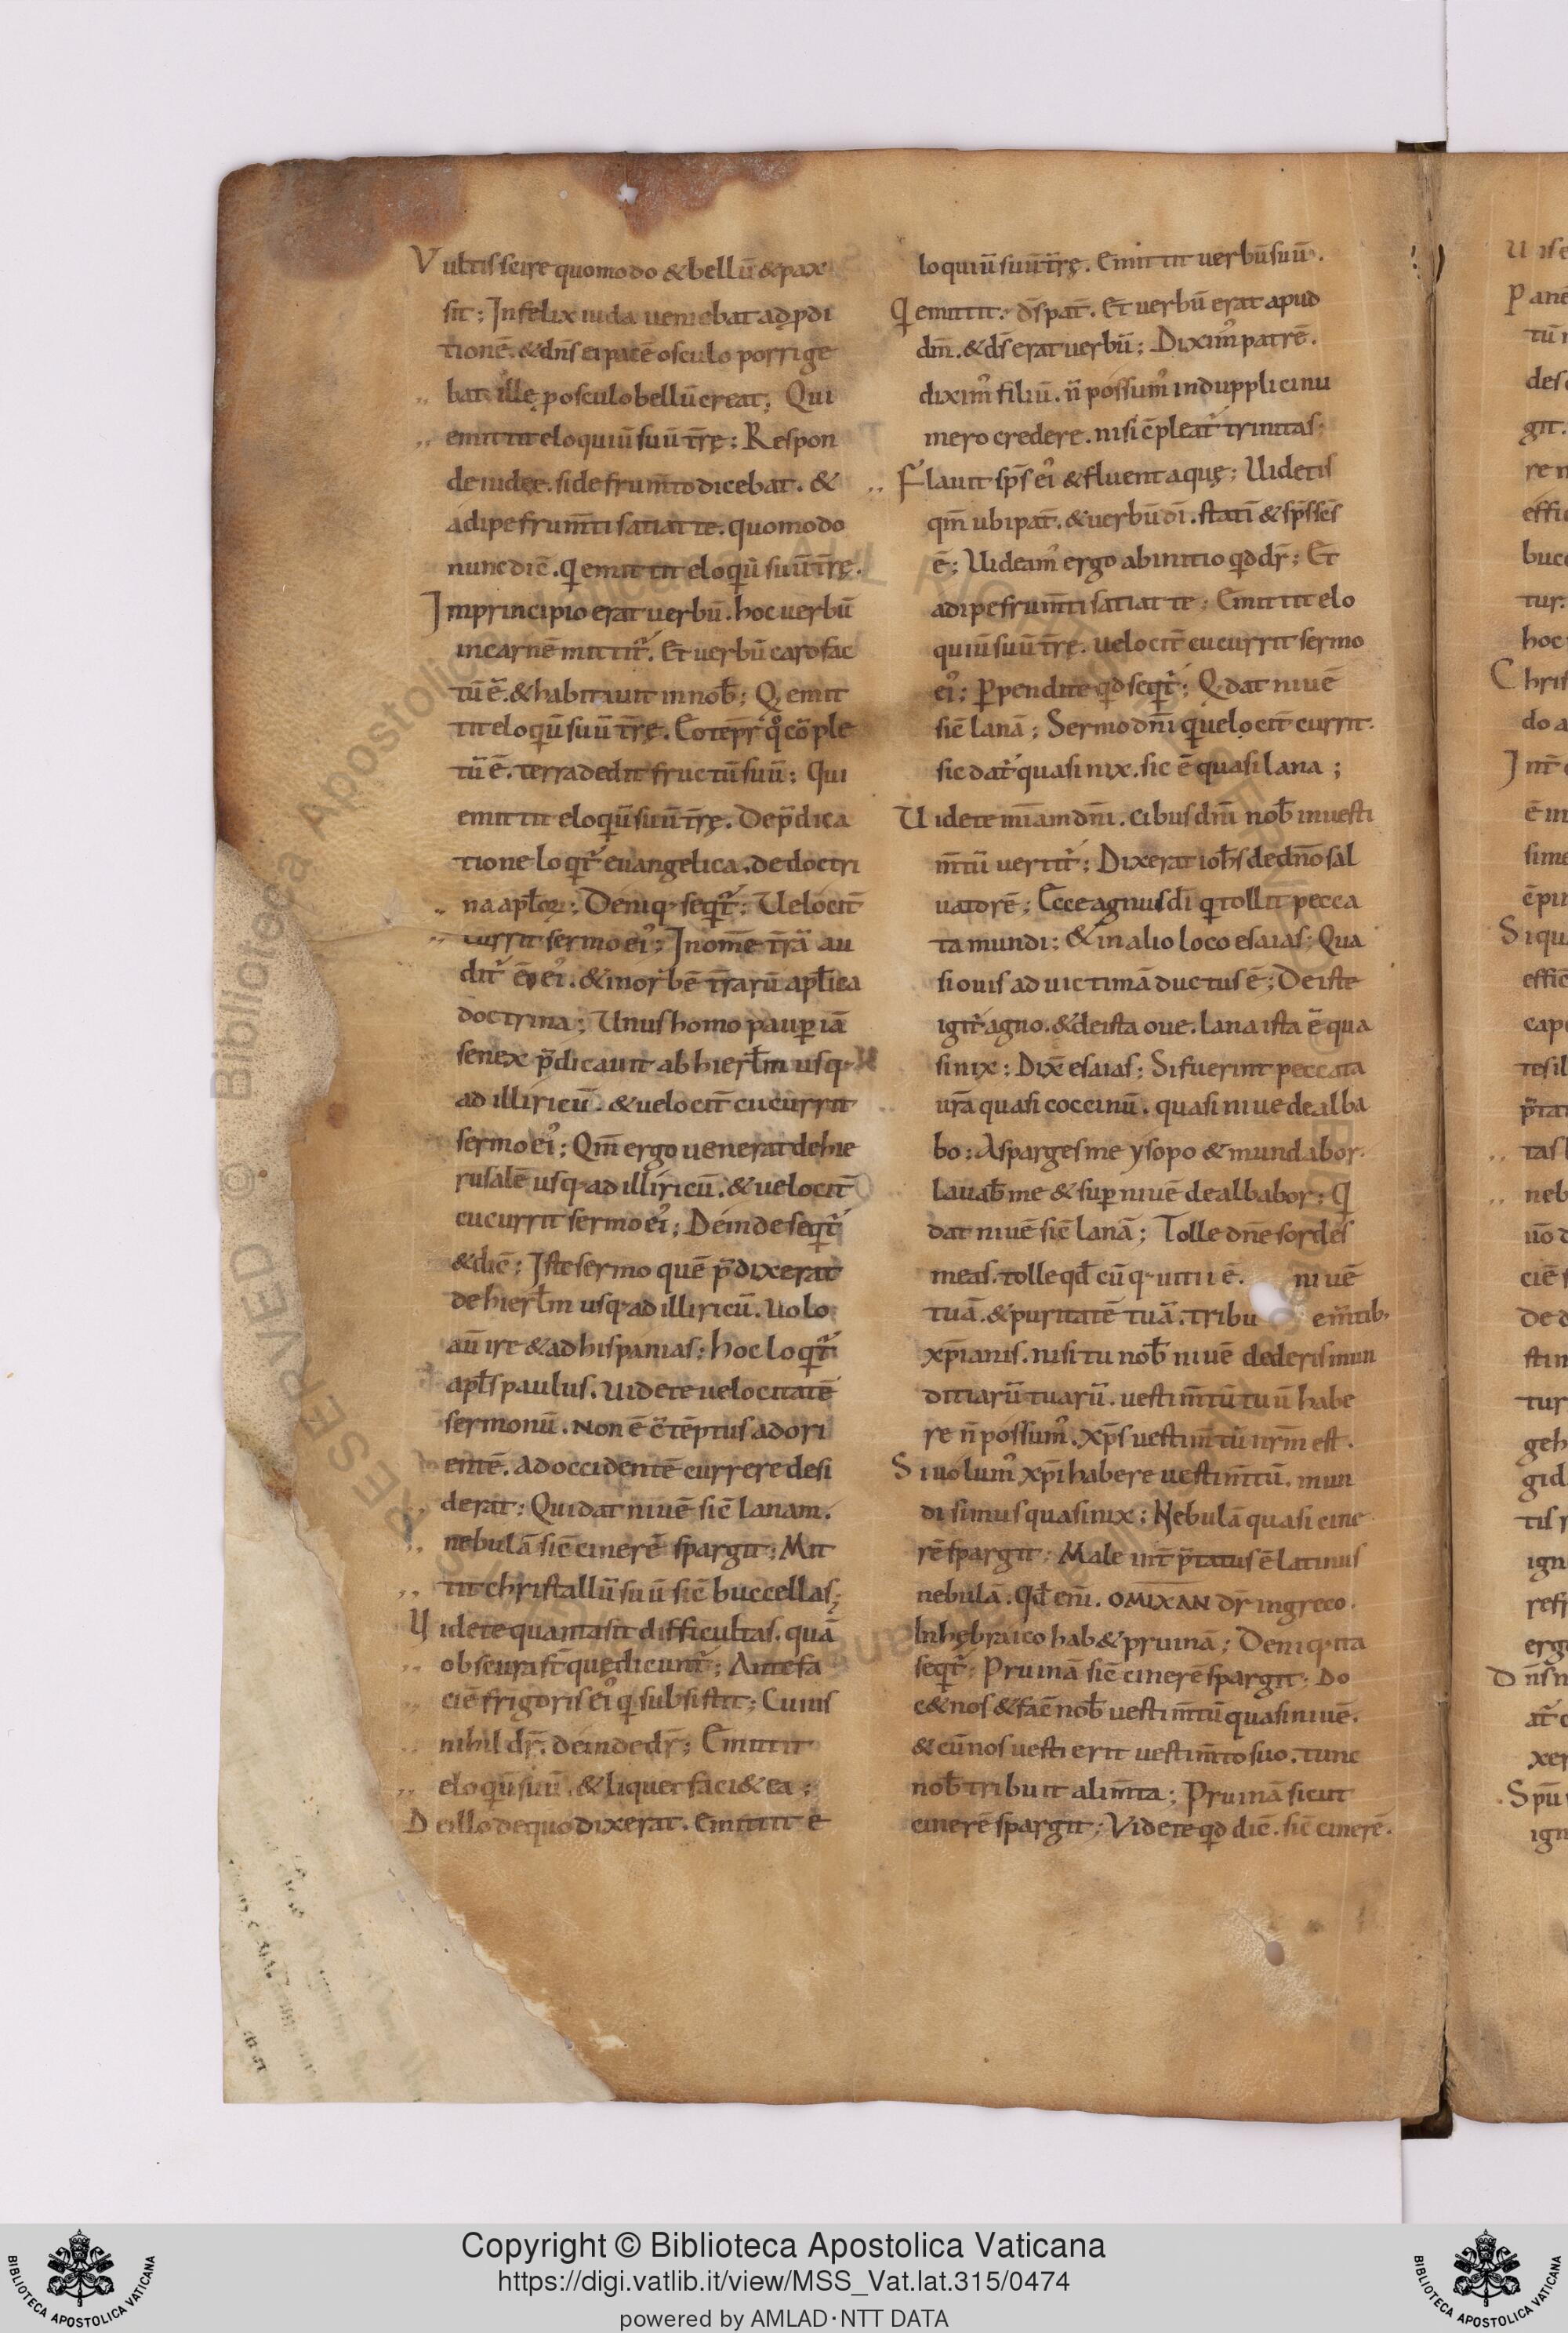 Vultis scire quomodo & bellū & pax
sit; Infelix iuda ueniebat ad pdi
tionē. & dn̄s ei pacē osculo porrige
bat. ille posculo bellū creat; Qui
emittit eloquiū suū tr̄ę; Respon
de iudęe. si de frum̄to dicebat. &
adipe frum̄ti satiat te. quomodo
nunc dic̄. q emittit eloqū suū tr̄ę.
In principio erat uerbū. hoc uerbū
in carnē mittit᷑. Et uerbū caro fac
tū ē. & habitauit in nob̄; Q emit
tit eloqū suū tr̄ę.
tū ē. terra dedit fructū suū; Qui
emittit eloqū suū tr̄ę. De p̄dica
tione loqt᷑ euangelica. de doctri
na apl̄oꝝ; Deniq; seqt᷑; Uelocit̄
currit sermo ei᾽; In om̄e tr̄ā au
dit᷑
doctrina; Unus homo paup iā
senex p̄dicauit ab hierl̄m usq;
ad illiricū. & uelocit̄ cucurrit
sermo ei᾽; Qm̄ ergo uenerat de hie
rusalē usq; ad illiricū. & uelocit̄
cucurrit sermo ei᾽; Deinde seqt᷑
& dic̄; Iste sermo quē p̄dixerat
de hierl̄m usq; ad illiricū. Uolo
aū ire & ad hispanias; hoc loqt᷑
apl̄s paulus. Uidete uelocitatē
sermonū. Non ē c̄tēptus ab ori
entē. ad occidentē currere desi
derat; Qui dat niuē sic̄ lanam.
nebulā sic̄ cinerē spargit; Mit
tit christallū suū sic̄ buccellas;
Uidete quanta sit difficultas. quā
obscura st̄ quę dicunt᷑; Ante fa
ciē frigoris ei᾽ q subsistit; Cuius
nihil dr̄. deinde dr̄; Emittit
eloqū suū. & liquefaci& ea;
De illo de quo dixerat. emittit e
loquiū suū tr̄ę. Emittit uerbū suū.
Q emittit. ds̄ pat̄. Et uerbū erat apud
dm̄. & ds̄ erat uerbū; Dixim᾽ patrē.
dixim᾽ filiū. n̄ possum᾽ in dupplici nu
mero credere. nisi c̄pleat᷑ trinitas;
Flauit sp̄s ei᾽ & fluent aquę; Uidetis
qm̄ ubi pat̄. & uerbū dī. statī & sp̄s sc̄s
ē; Uideam᾽ ergo ab initio qd dr̄; Et
adipe frum̄ti satiat te; Emittit elo
quiū suū tr̄ę. uelocit̄ cucurrit sermo
ei᾽; Ppendite qd seqt᷑; Q dat niuē
sic̄ lanā; Sermo dn̄i q uelocit̄ currit.
sic dat᷑ quasi nix. sic ē quasi lana;
Uidete mīam dn̄i. cibus dn̄i nob̄ in uesti
m̄tū uertit᷑; Dixerat ioh̄s de dn̄o sal
uatorē; Ecce agnus dī q tollit pecca
ta mundi; & in alio loco esaias; Qua
si ouis ad uictimā ductus ē; De iste
igit᷑ agno. & de ista oue. lana ista ē qua
si nix; Dix̄ esaias; Si fuerint peccata
ur̄a quasi coccinū. quasi niue dealba
bo; Asparges me ysopo & mundabor.
Lauab̄ me & sup niuē dealbabor; Q
dat niuē sic̄ lanā; Tolle dn̄e sordes
meas. tolle qd̄ cūq; uitii ē. niuē
tuā. & puritatē tuā. tribu em̄tib;
xp̄ianis. nisi tu nob̄ niuē dederis mun
ditiarū tuarū. uestim̄tū tuū habe
re n̄ possum᾽. Xp̄s uestim̄tū nr̄m est.
Si uolum᾽ xp̄i habere uestim̄tū. mun
di simus quasi nix; Nebulā quasi cine
rē spargit; Male int̄ p̄tatus ē latinus
nebulā. Qd̄ eni̅. OMIXAN dr̄ in greco.
In hębraico hab& pruinā; Deniq; ita
seqt᷑; Pruinā sic̄ cinerē spargit; Do
c& nos & fac̄ nob̄ uestim̄tū quasi niuē.
& cū nos uestierit uestim̄to suo. tunc
nob̄ tribuit alim̄ta; Pruinā sicut
cinerē spargit; Videte qd dic̄. sic̄ cinerē.
Copyright © Biblioteca Apostolica Vaticana
https://digi.vatlib.it/view/MSS_Vat.lat.315/0474
powered by AMLAD·NTT DATA